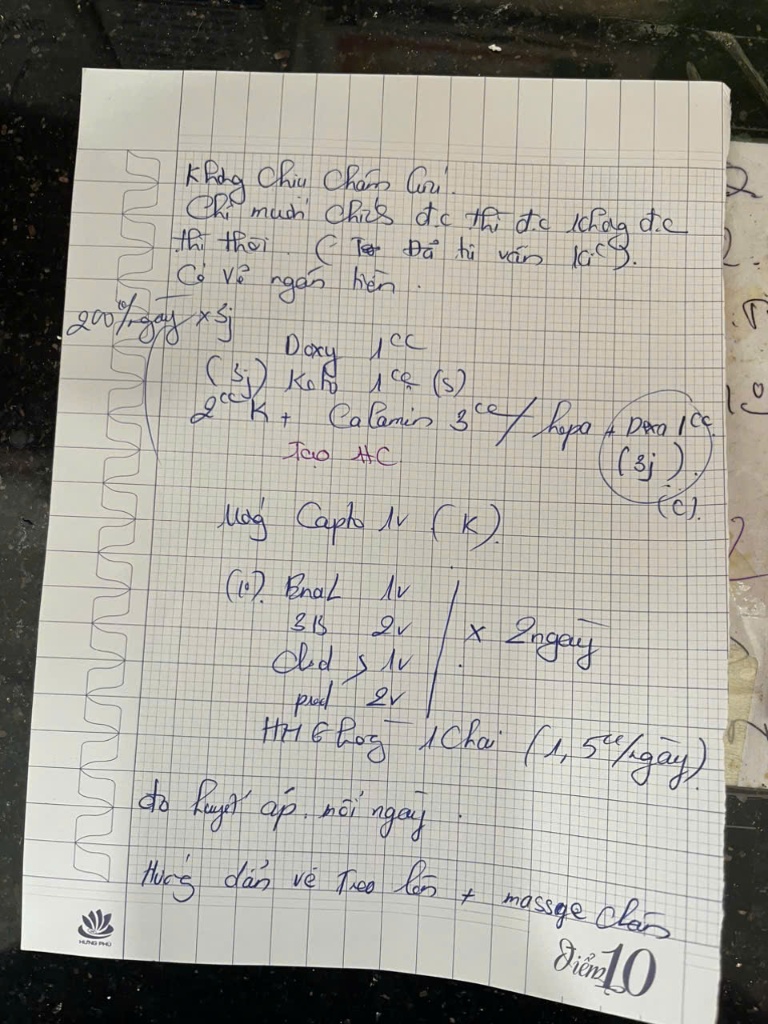 Không Chịu Châm Cứu.
Chỉ muốn chích đ.c thì đ.c không đ.c
thì thôi. ( Đã tư vấn kĩ ).
Có vẻ ngán tiền.
200/ngày x 3j
Doxy 1cc
(3j) Keto 1cc (S)
2cc K + Calamin 3cc / hepa + Dexa 1cc
(3j)
Tạo HC
(C).
Uống Capto 1v (K)
(10). Enal 1v
3B 2v
x 2 ngày
1v
pred 2v
HH 1 Chai (1,5cc/ngày)
đo huyết áp mỗi ngày.
Hướng dẩn về Treo lên + massge chân
HƯNG PHÚ
Điểm 10